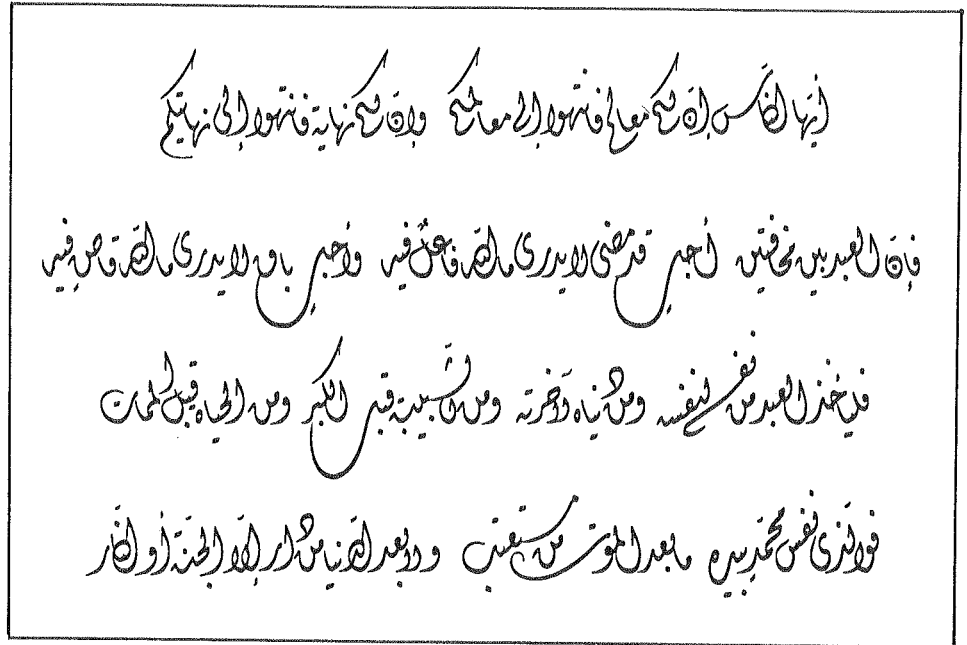 أيها الناس إن لكم معالم فانتهوا إلى معالمكم وإن لكم نهاية فانتهوا إلى نهايتكم
فإن العبد بين مخافتين أجل قد مضى لا يدرى ما الله فاعل فيه وأجل باق لا يدرى ما الله قاض فيه
فليأخذ العبد من نفسه لنفسه ومن دنياه لآخرته ومن الشبيبة قبل الكبر ومن الحياه قبل الممات
فوالذى نفس محمد بيده ما بعد الموت من مستعتب ولا بعد الدنيا من دار إلا الجنة أو النار